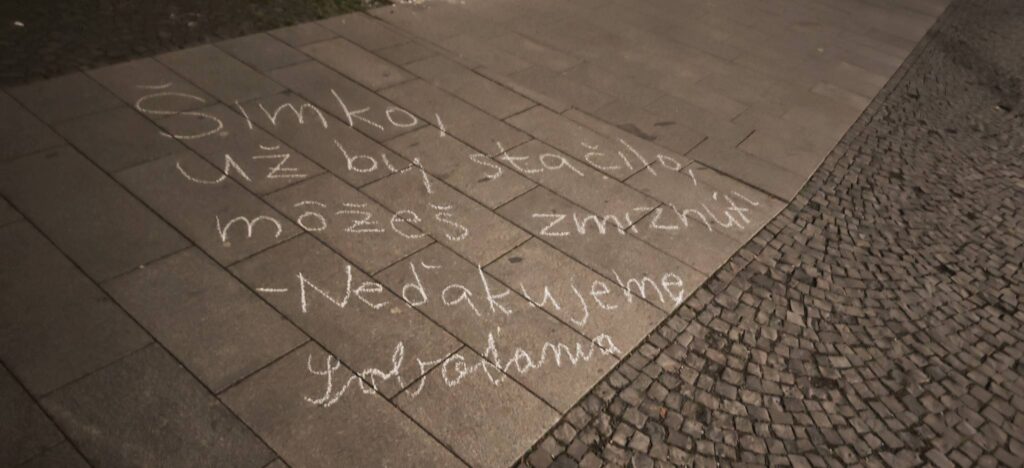 Šimko,
už by stačilo,
môžeš zmrznúť!
-Neďakujeme
Dovidania